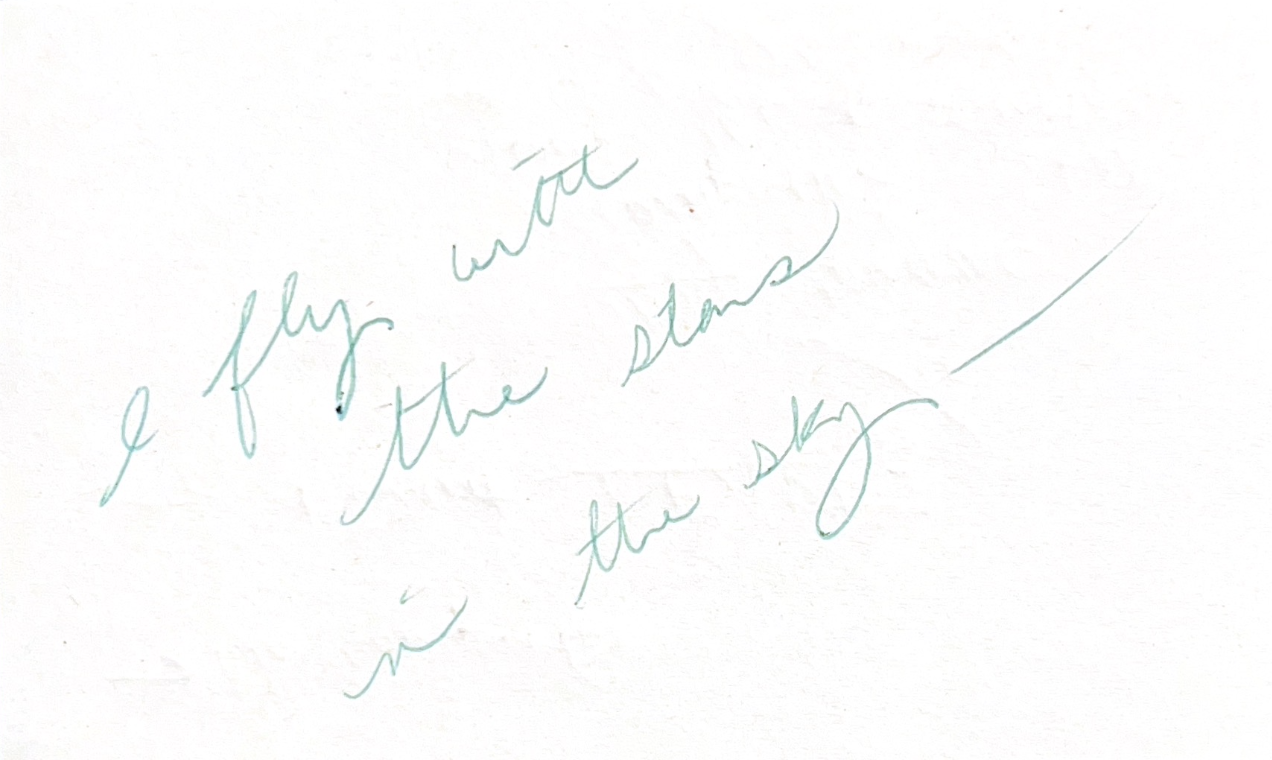 I fly with
the stars
in the sky —